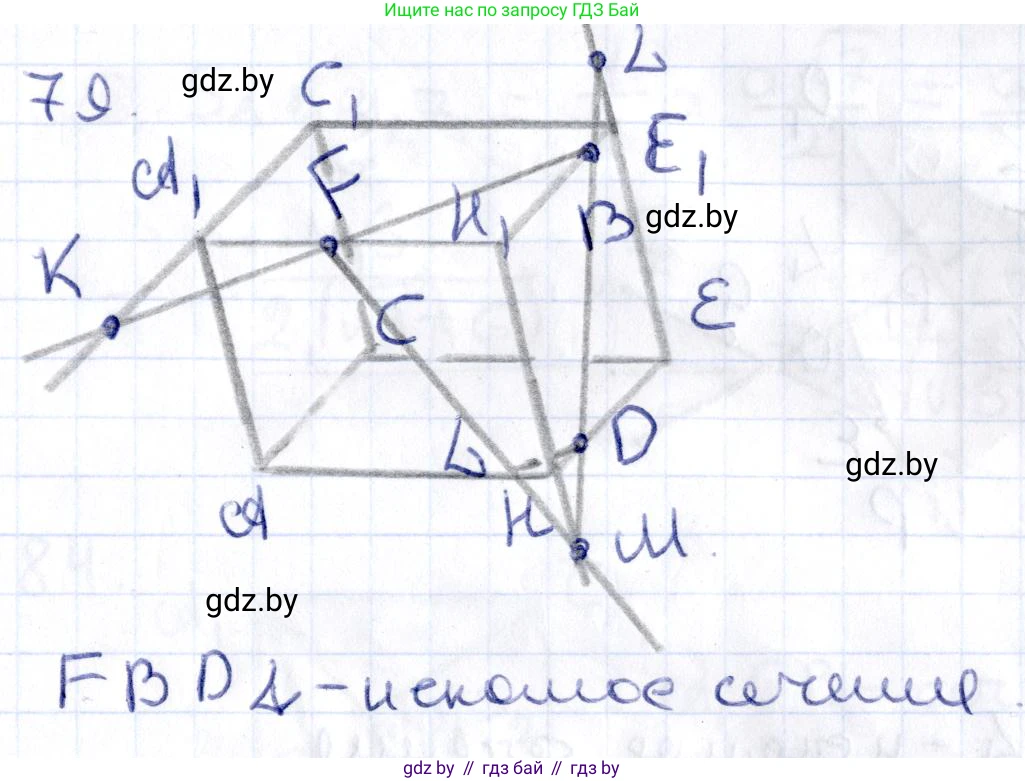 Ищите нас по запросу ГДЗ Бай
79.
gdz.by
C₁
L
A₁
F
E₁
H₁
B
gdz.by
K
C
E
L
D
gdz.by
A
H
M
gdz.by
FBDL – искомое сечение.
gdz.by // гдз бай // gdz.by